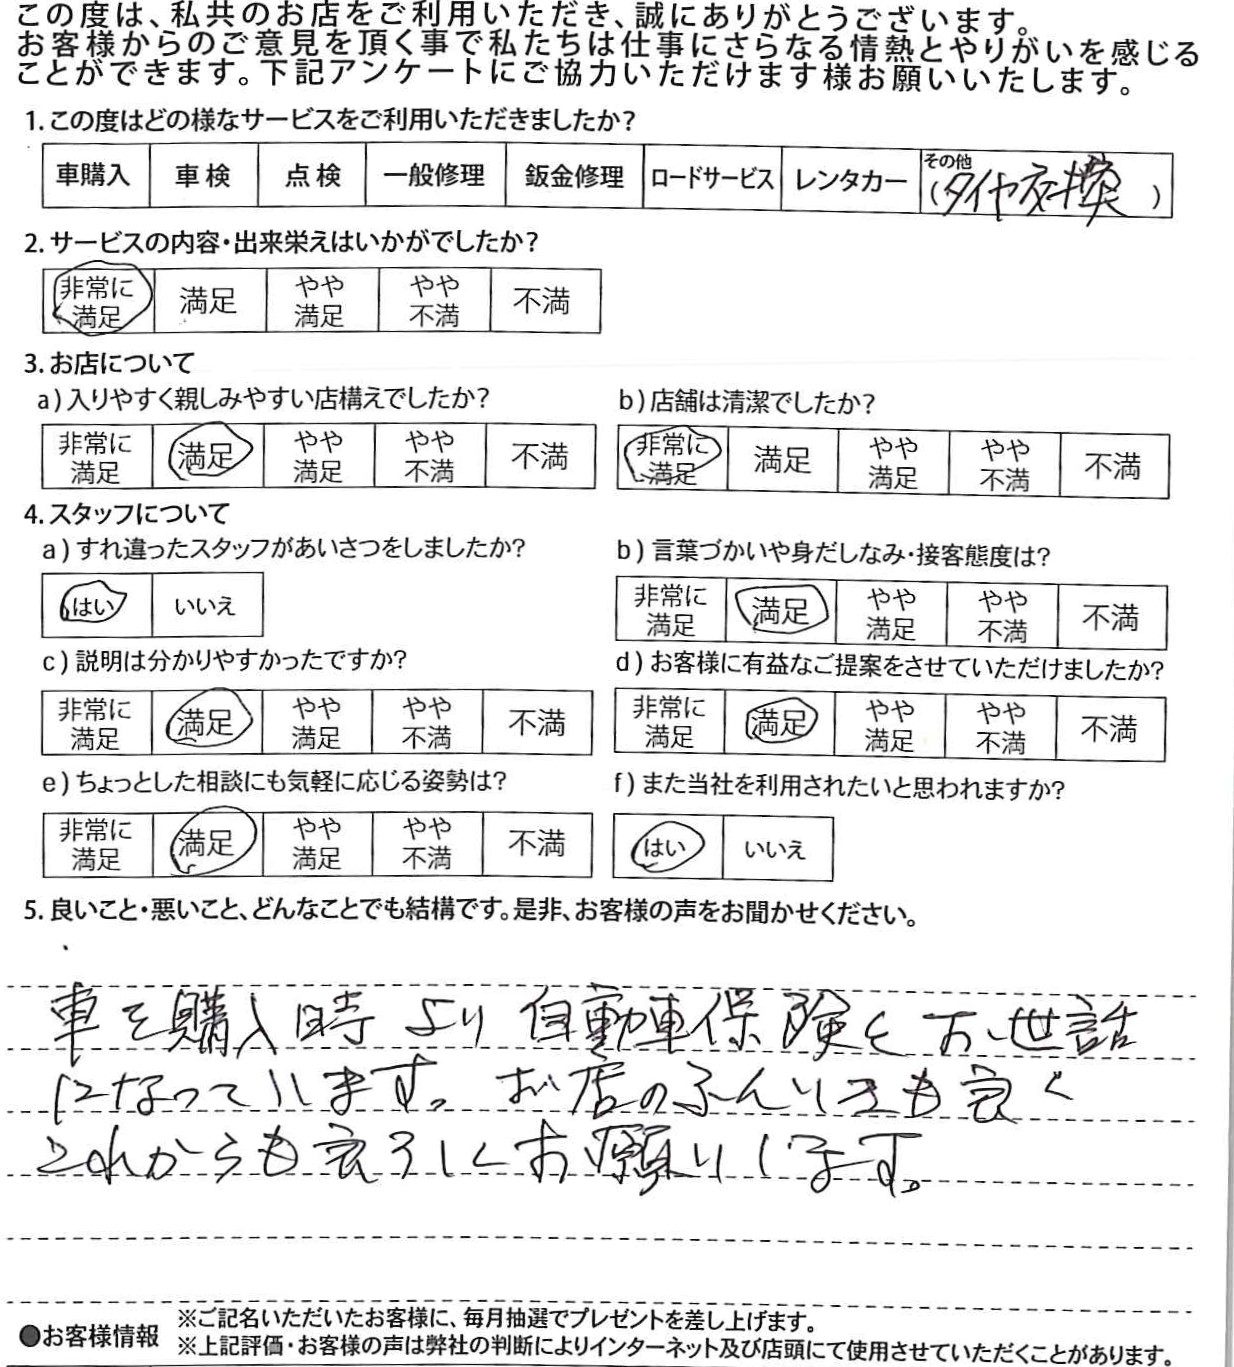 この度は、私共のお店をご利用いただき、誠にありがとうございます。
お客様からのご意見を頂く事で私たちは仕事にさらなる情熱とやりがいを感じる
ことができます。下記アンケートにご協力いただけます様お願いいたします。
1.この度はどの様なサービスをご利用いただきましたか?
車購入 車検 点検 一般修理 鈑金修理 ロードサービス レンタカー その他
(タイヤ交換)
2.サービスの内容・出来栄えはいかがでしたか?
非常に満足 満足 やや満足 やや不満 不満
3.お店について
a)入りやすく親しみやすい店構えでしたか? b)店舗は清潔でしたか?
非常に満足 満足 やや満足 やや不満 不満 非常に満足 満足 やや満足 やや不満 不満
4.スタッフについて
a)すれ違ったスタッフがあいさつをしましたか? b)言葉づかいや身だしなみ・接客態度は?
はい いいえ 非常に満足 満足 やや満足 やや不満 不満
c)説明は分かりやすかったですか? d)お客様に有益なご提案をさせていただけましたか?
非常に満足 満足 やや満足 やや不満 不満 非常に満足 満足 やや満足 やや不満 不満
e)ちょっとした相談にも気軽に応じる姿勢は? f)また当社を利用されたいと思われますか?
非常に満足 満足 やや満足 やや不満 不満 はい いいえ
5.良いこと・悪いこと、どんなことでも結構です。是非、お客様の声をお聞かせください。
車を購入時より自動車保険とお世話
になっています。お店のふんいきも良く
これからも良ろしくお願いします。
●お客様情報 ※ご記名いただいたお客様に、毎月抽選でプレゼントを差し上げます。
※上記評価・お客様の声は弊社の判断によりインターネット及び店頭にて使用させていただくことがあります。